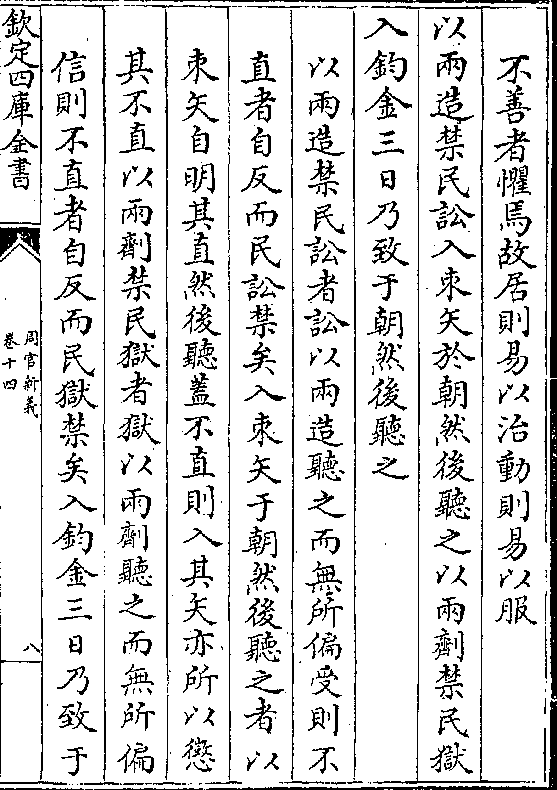 不善者懼焉故居則易以治動則易以服
以兩造禁民訟入束矢於朝然後聽之以兩劑禁民獄
入鈞金三日乃致于朝然後聽之
以兩造禁民訟者訟以兩造聽之而無所偏受則不
直者自反而民訟禁矣入束矢于朝然後聽之者以
束矢自明其直然後聽蓋不直則入其矢亦所以懲
其不直以兩劑禁民獄者獄以兩劑聽之而無所偏
信則不直者自反而民獄禁矣入鈞金三日乃致于
欽定四庫全書
周官新義
卷十四
八